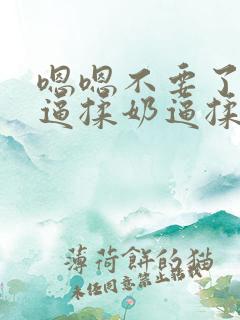 嗯嗯不要了
逼揉奶逼揉
薄荷餅的猫
未经同意禁止转载